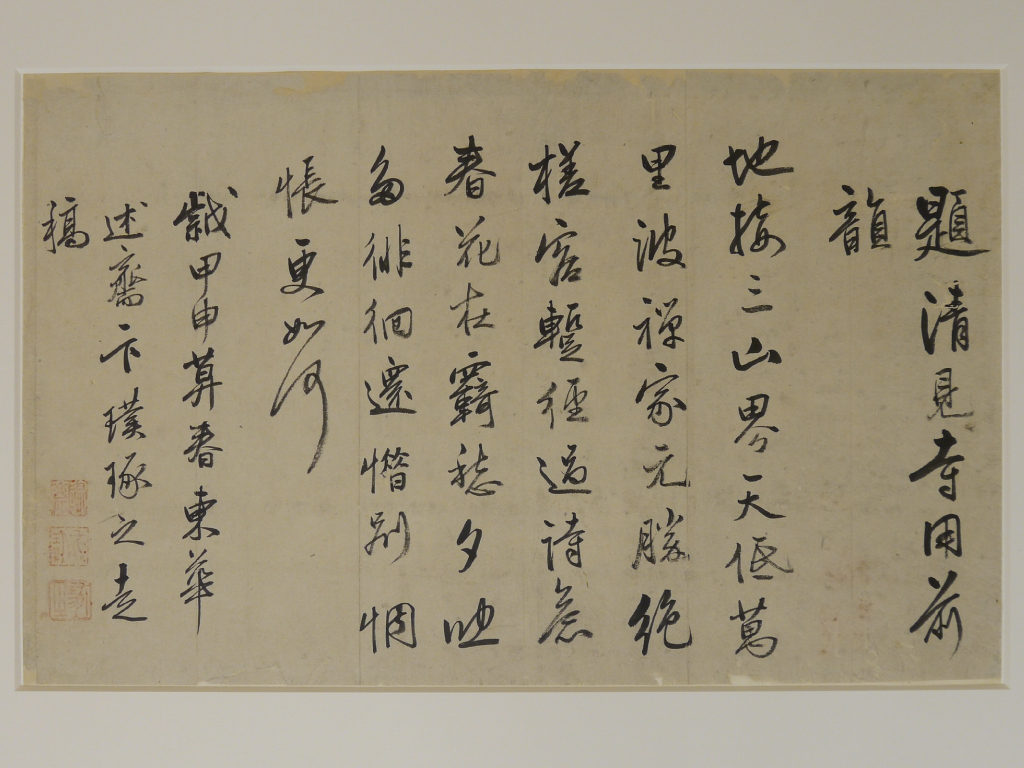 題清見寺用前
韻
地接三山界天低萬
里波禪家元勝絶
槎客蹔經過詩意
春花在羈愁夕映
多徘徊還惜別惆
悵更如何
歲甲申暮春東華
述齋卞璞琢之走
稿